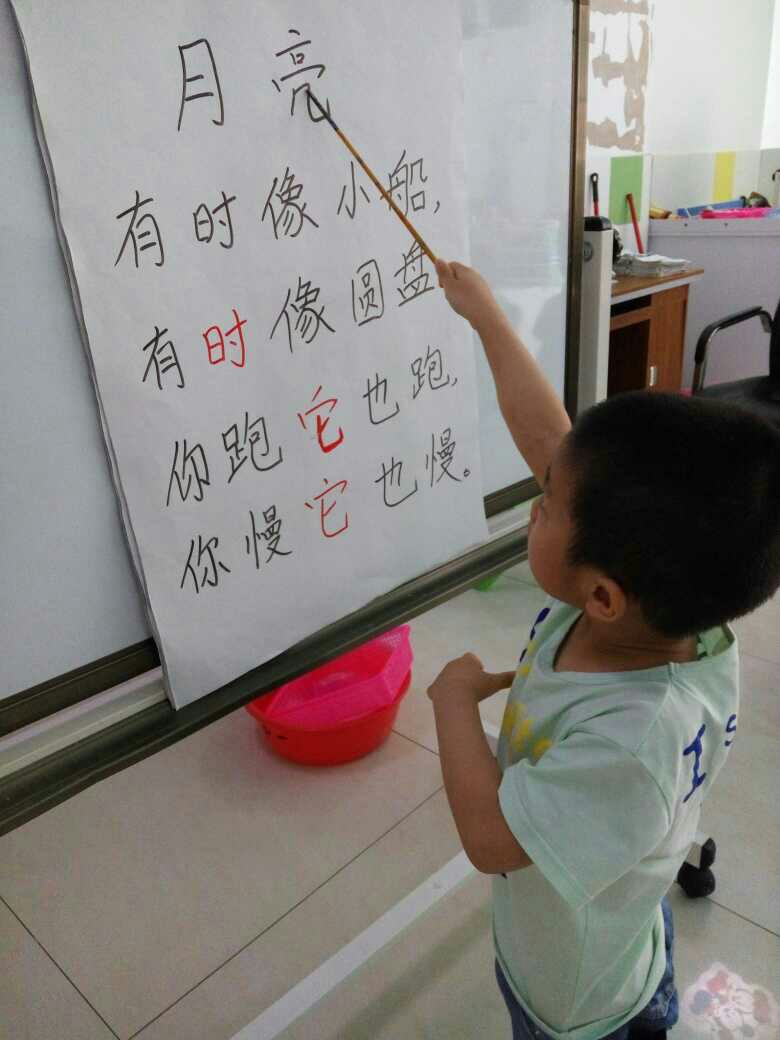 月亮
有时像小船,
有时像圆盘
你跑它也跑,
你慢它也慢。